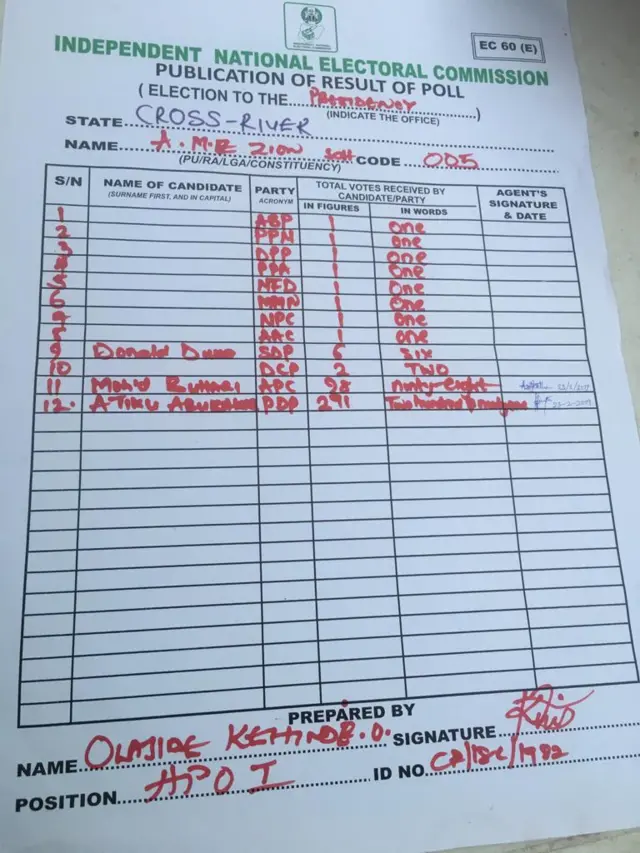 EC 60 (E)
INDEPENDENT NATIONAL ELECTORAL COMMISSION
PUBLICATION OF RESULT OF POLL
( ELECTION TO THE...PRESIDENCY...)
(INDICATE THE OFFICE)
STATE...CROSS-RIVER
NAME...A.M.E ZION SCH CODE...005
(PU/RA/LGA/CONSTITUENCY)
S/N NAME OF CANDIDATE (SURNAME FIRST, AND IN CAPITAL) PARTY ACRONYM TOTAL VOTES RECEIVED BY CANDIDATE/PARTY IN FIGURES IN WORDS AGENT'S SIGNATURE & DATE
1 1 one
2 PPN 1 one
3 DPP 1 one
4 PPA 1 one
5 1 one
6 1 one
7 NPC 1 one
AAC 1 one
9 Donald SDP 6 SIX
10 DCP 2 TWO
11 Buhari APC 98 ninety-eight
12. ATIKU PDP 291 Two hundred
PREPARED BY
NAME...OLAJIDE KEHINDE B.O. SIGNATURE
POSITION...APO I ID NO. CR/